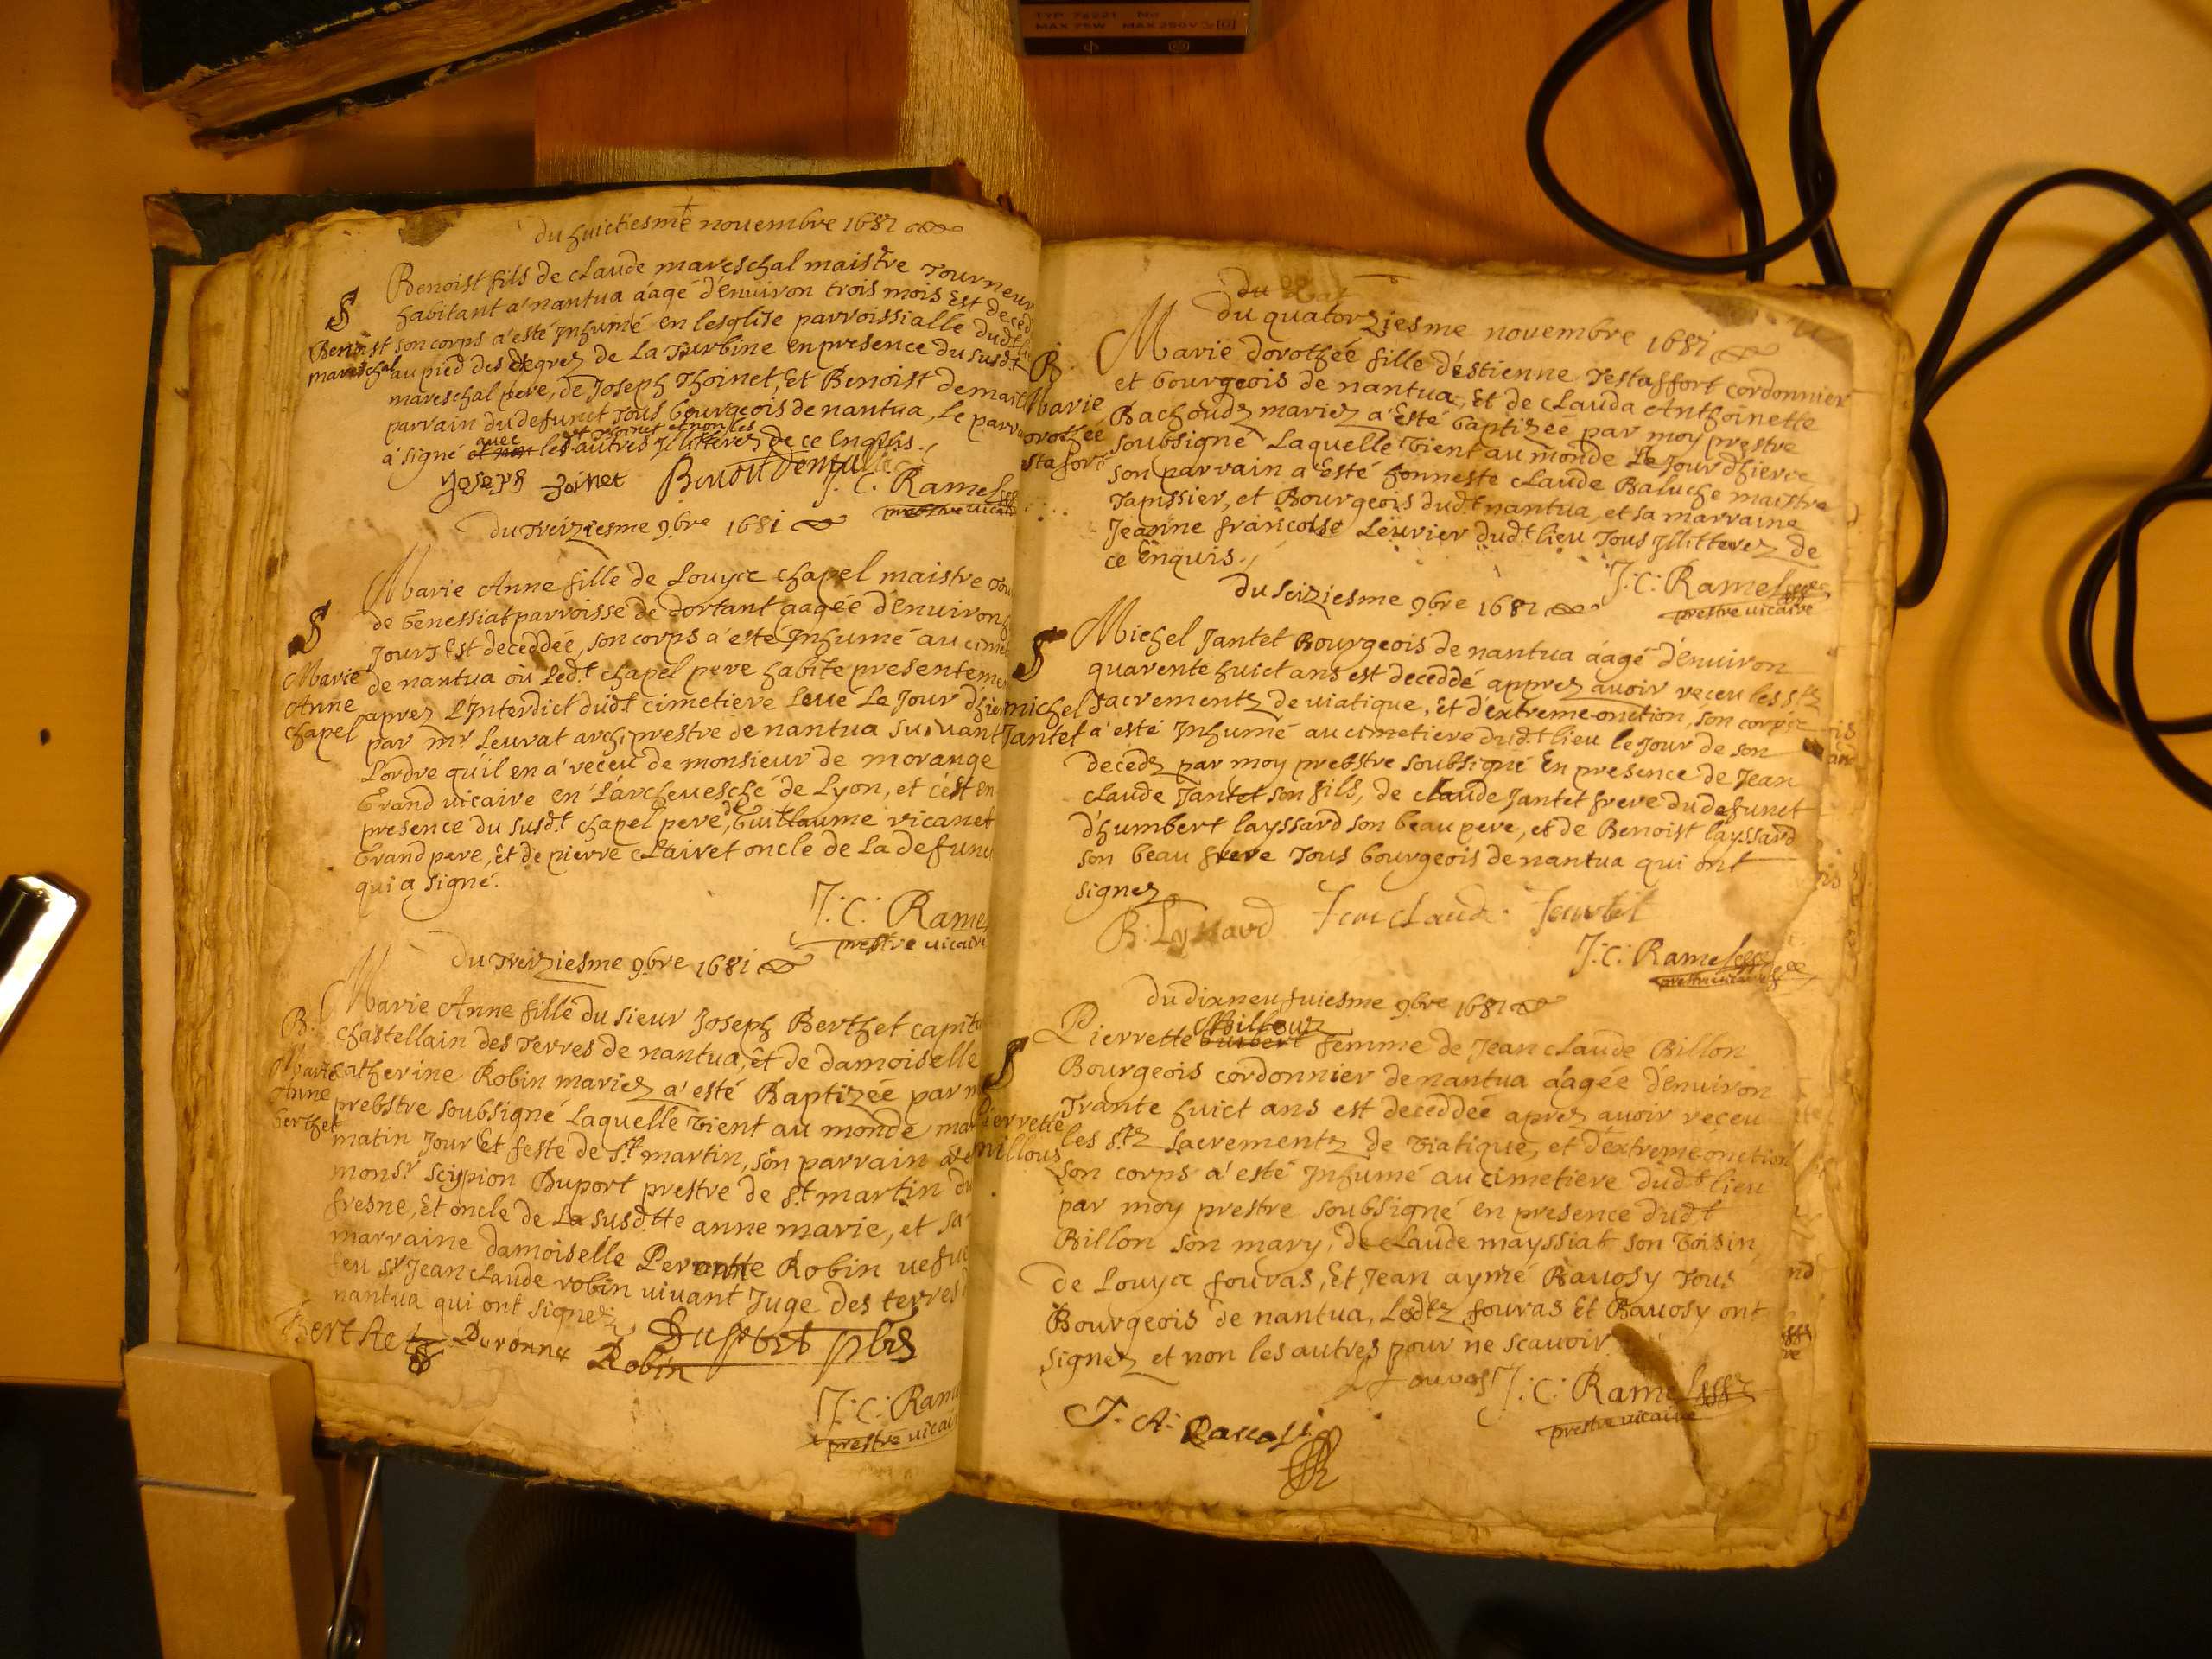 TYP 74221 No
MAX 75W MAX 250V
du huictiesme novembre 1681
Benoist fils de claude mareschal maistre Tourneur
habitant a' nantua aágé d'enuiron trois mois Est deced
S
Benoist
mareschal
son corps a'esté Inhumé en lesglise parroissialle dud.t
au pied des degrez de La Turbine en presence du susd.t
mareschal pere, de Joseph Thoinet, et Benoist demai
parvain du defunct Tous bourgeois de nantua, Le parva
á signé avec les autres Jllitterez de ce Enquis.
Joseph Toinet
J. C. Ramel
prebstre vicai
du Treiziesme 9bre 1681
Marie Anne fille de Louyce chapel maistre Tou
de Genessiat parroisse de dortant aagée d'enuiron
S
Jours Est deceddée, son corps a' esté Inhumé au cime
Marie
Anne
chapel
de nantua oú Led.t chapel pere habite presenteme
aprez L'Interdict dud.t cimetiere Leué Le Jour d'hier
par mr Leurat archiprestre de nantua suivant
L'ordre quil en a' receu de monsieur de morange
Grand vicaire en L'archeuesché de Lyon, et c'est en
presence du susd.t chapel pere, de Guillaume vicanet
Grand pere, Et de pierre Clairet oncle de La defunc
qui a signé.
J. C. Rame
prestre vicaire
du Treiziesme 9bre 1681
Marie Anne fille du sieur Joseph Berthet capit
B.
chastellain des Terres de nantua, et de damoiselle
Marie
Anne
berthet
catherine Robin mariez a' esté Baptizée par m
prebstre soubsigné Laquelle vient au monde mar
matin Jour Et feste de St. martin, son parvain
monsr scipion Duport prestre de St martin du
fresne, Et oncle de La susd.tte anne marie, et sa
marraine damoiselle Robin uefue
feu sr Jean claude robin vivant Juge des terres
nantua qui ont signez.
Berthet
Robin
Duport pbre
J. C. Ram
prestre vicai
du
du quatorziesme novembre 1681
B.
Marie dorothée fille d'estienne Testaffort cordonnier
et bourgeois de nantua, Et de clauda Anthoinette
Marie
orothée
stafort
Bachoudz mariez a'esté baptizée par moy prestre
soubsigné Laquelle vient au monde Le Jour d'hierre,
son parvain a Esté honneste claude Baluche maistre
Tapissier, et Bourgeois dud.t nantua, et sa marraine
Jeanne francoise Leurier dud.t lieu Tous Jllitterez de
ce enquis.
J. C. Ramel
prestre vicaire
du seiziesme 9bre 1681
S
Michel Jantet Bourgeois de nantua aágé d'enuiron
quarente huict ans est deceddé apprez avoir receu les Stz
michel
Jantet
sacrementz de viatique, et d'extreme-onction, son corps
a'esté Inhumé au cimetiere dud.t lieu le Jour de son
decedz par moy prebstre soubsigné En presence de Jean
claude Jantet son fils, de claude Jantet frere du defunct
d'humbert layssard son beau pere, et de Benoist layssard
son beau frere Tous bourgeois de nantua qui ont
signez
J. C. Ramel
prestre vicaire
du dixneufuiesme 9bre 1681
S
Pierrette femme de Jean claude Billon
Bourgeois cordonnier de nantua aágée d'enuiron
Trante huict ans est deceddée aprez auoir receu
ierrette
les Stz sacrementz de viatique, et d'extreme onction
son corps a' esté Inhumé au cimetiere dud.t lieu
par moy prestre soubsigné en presence dud.t
Billon son mary, de claude mayssiat son voisin,
de Louyce fouras, Et Jean aymé Bauosy Tous
Bourgeois de nantua, Lesd.tz fouras Et Bauosy ont
signez et non les autres pour ne scauoir.
J. C. Ramel
prestre vicaire
J. A.